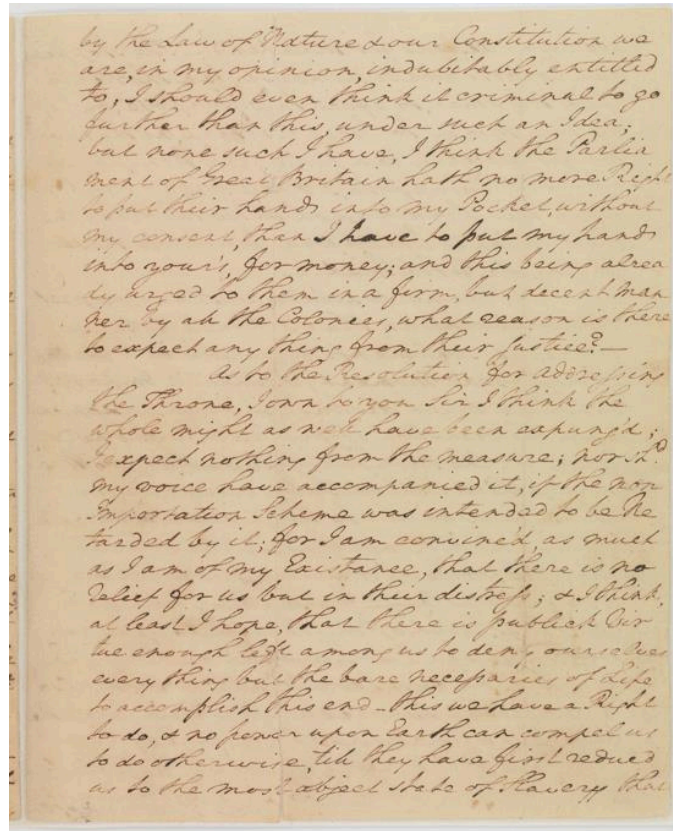 by the Law of Nature & our Constitution we
are, in my opinion, indubitably entitled
to, I should even think it criminal to go
further than this, under such an Idea;
but none such I have, I think the Parlia
ment of Great Britain hath no more Right
to put their hands into my Pocket, without
my consent, than I have to put my hands
into your's, for money; and this being alrea
dy urged to them in a firm, but decent man
ner by all the Colonies, what reason is there
to expect any thing from their justice?—
As to the Resolution for addressing
the Throne, I own to you Sir I think the
whole might as well have been expung'd;
I expect nothing from the measure; nor shd.
my voice have accompanied it, if the non
Importation Scheme was intended to be Re
tarded by it; for I am convinc'd as much
as I am of my Existance, that there is no
relief for us but in their distress; & I think,
at least I hope, that there is publick Vir
tue enough left among us to deny ourselves
every thing but the bare necessaries of Life
to accomplish this end – this we have a Right
to do, & no power upon Earth can compel us
to do otherwise, till they have first reduced
us to the most abject state of Slavery that